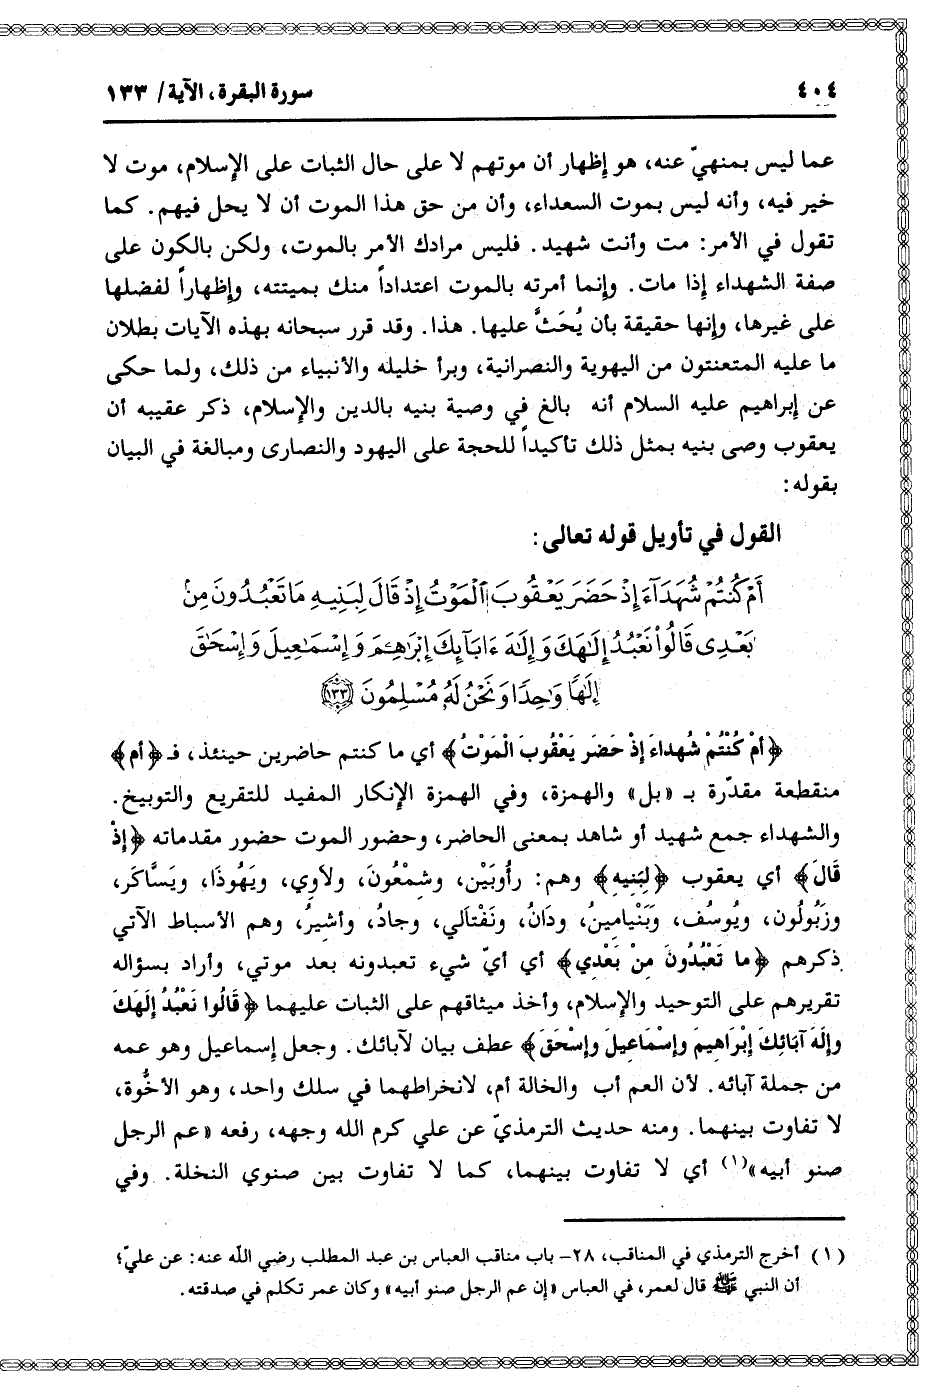 ٤٠٤
سورة البقرة، الآية/ ١٣٣
عما ليس بمنهيّ عنه، هو إظهار أن موتهم لا على حال الثبات على الإسلام، موت لا
خير فيه، وأنه ليس بموت السعداء، وأن من حق هذا الموت أن لا يحل فيهم. كما
تقول في الأمر: مت وأنت شهيد. فليس مرادك الأمر بالموت، ولكن بالكون على
صفة الشهداء إذا مات. وإنما أمرته بالموت اعتداداً منك بميتته، وإظهاراً لفضلها
على غيرها، وإنها حقيقة بأن يُحَثَّ عليها. هذا. وقد قرر سبحانه بهذه الآيات بطلان
ما عليه المتعنتون من اليهوية والنصرانية، وبرأ خليله والأنبياء من ذلك، ولما حكى
عن إبراهيم عليه السلام أنه بالغ في وصية بنيه بالدين والإسلام، ذكر عقيبه أن
يعقوب وصى بنيه بمثل ذلك تأكيداً للحجة على اليهود والنصارى ومبالغة في البيان
بقوله:
القول في تأويل قوله تعالى:
أَمۡ كُنتُمۡ شُهَدَآءَ إِذۡ حَضَرَ يَعۡقُوبَ ٱلۡمَوۡتُ إِذۡ قَالَ لِبَنِيهِ مَا تَعۡبُدُونَ مِنۢ
بَعۡدِي قَالُواْ نَعۡبُدُ إِلَٰهَكَ وَإِلَٰهَ ءَابَآئِكَ إِبۡرَٰهِـۧمَ وَإِسۡمَٰعِيلَ وَإِسۡحَٰقَ
إِلَٰهٗا وَٰحِدٗا وَنَحۡنُ لَهُۥ مُسۡلِمُونَ ۝١٣٣
﴿أمْ كُنْتُمْ شُهداءَ إذْ حَضَر يَعْقُوبَ الْمَوْتُ﴾ أي ما كنتم حاضرين حينئذ، فـ ﴿أم﴾
منقطعة مقدّرة بـ «بل» والهمزة، وفي الهمزة الإنكار المفيد للتقريع والتوبيخ.
والشهداء جمع شهيد أو شاهد بمعنى الحاضر، وحضور الموت حضور مقدماته ﴿إذْ
قَالَ﴾ أي يعقوب ﴿لِبَنِيه﴾ وهم: رأُوبَيْن، وشمْعُونَ، ولاَوِي، ويَهُوذَا، ويَسَّاكَر،
وزَبُولُون، ويُوسُف، وبَنْيامينُ، ودَانُ، ونَفْتَالَي، وجادُ، وأشيرُ، وهم الأسباط الآتي
ذكرهم ﴿ما تَعْبُدُونَ مِنْ بَعْدي﴾ أي أيّ شيء تعبدونه بعد موتي، وأراد بسؤاله
تقريرهم على التوحيد والإسلام، وأخذ ميثاقهم على الثبات عليهما ﴿قَالُوا نَعْبُدُ إلَهَكَ
وإلَهَ آبَائِكَ إبْرَاهِيمَ وإسْماعِيلَ وإسْحَقَ﴾ عطف بيان لآبائك. وجعل إسماعيل وهو عمه
من جملة آبائه. لأن العم أب والخالة أم، لانخراطهما في سلك واحد، وهو الأخُوَّة،
لا تفاوت بينهما. ومنه حديث الترمذيّ عن علي كرم الله وجهه، رفعه «عم الرجل
صنو أبيه»(١) أي لا تفاوت بينهما، كما لا تفاوت بين صنوي النخلة. وفي
(١) أخرج الترمذي في المناقب، ٢٨– باب مناقب العباس بن عبد المطلب رضي اللّه عنه: عن عليّ؛
أن النبي ﷺ قال لعمر، في العباس «إن عم الرجل صنو أبيه» وكان عمر تكلم في صدقته.